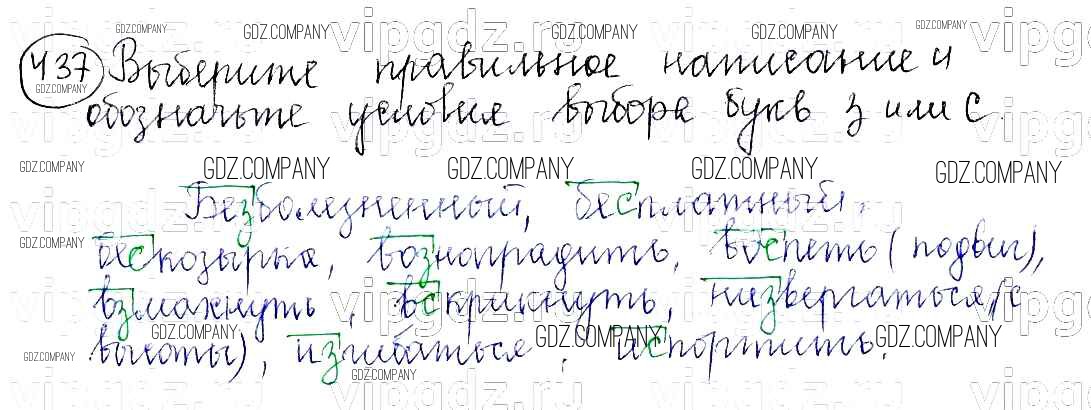 437 Выберите правильное написание и
обозначьте условия выбора букв з или с.
Безболезненный, бесплатный,
бескозырка, вознаградить, воспеть (подвиг),
взмахнуть, вскрикнуть, низвергаться (с
высоты), изгибаться, испортить.